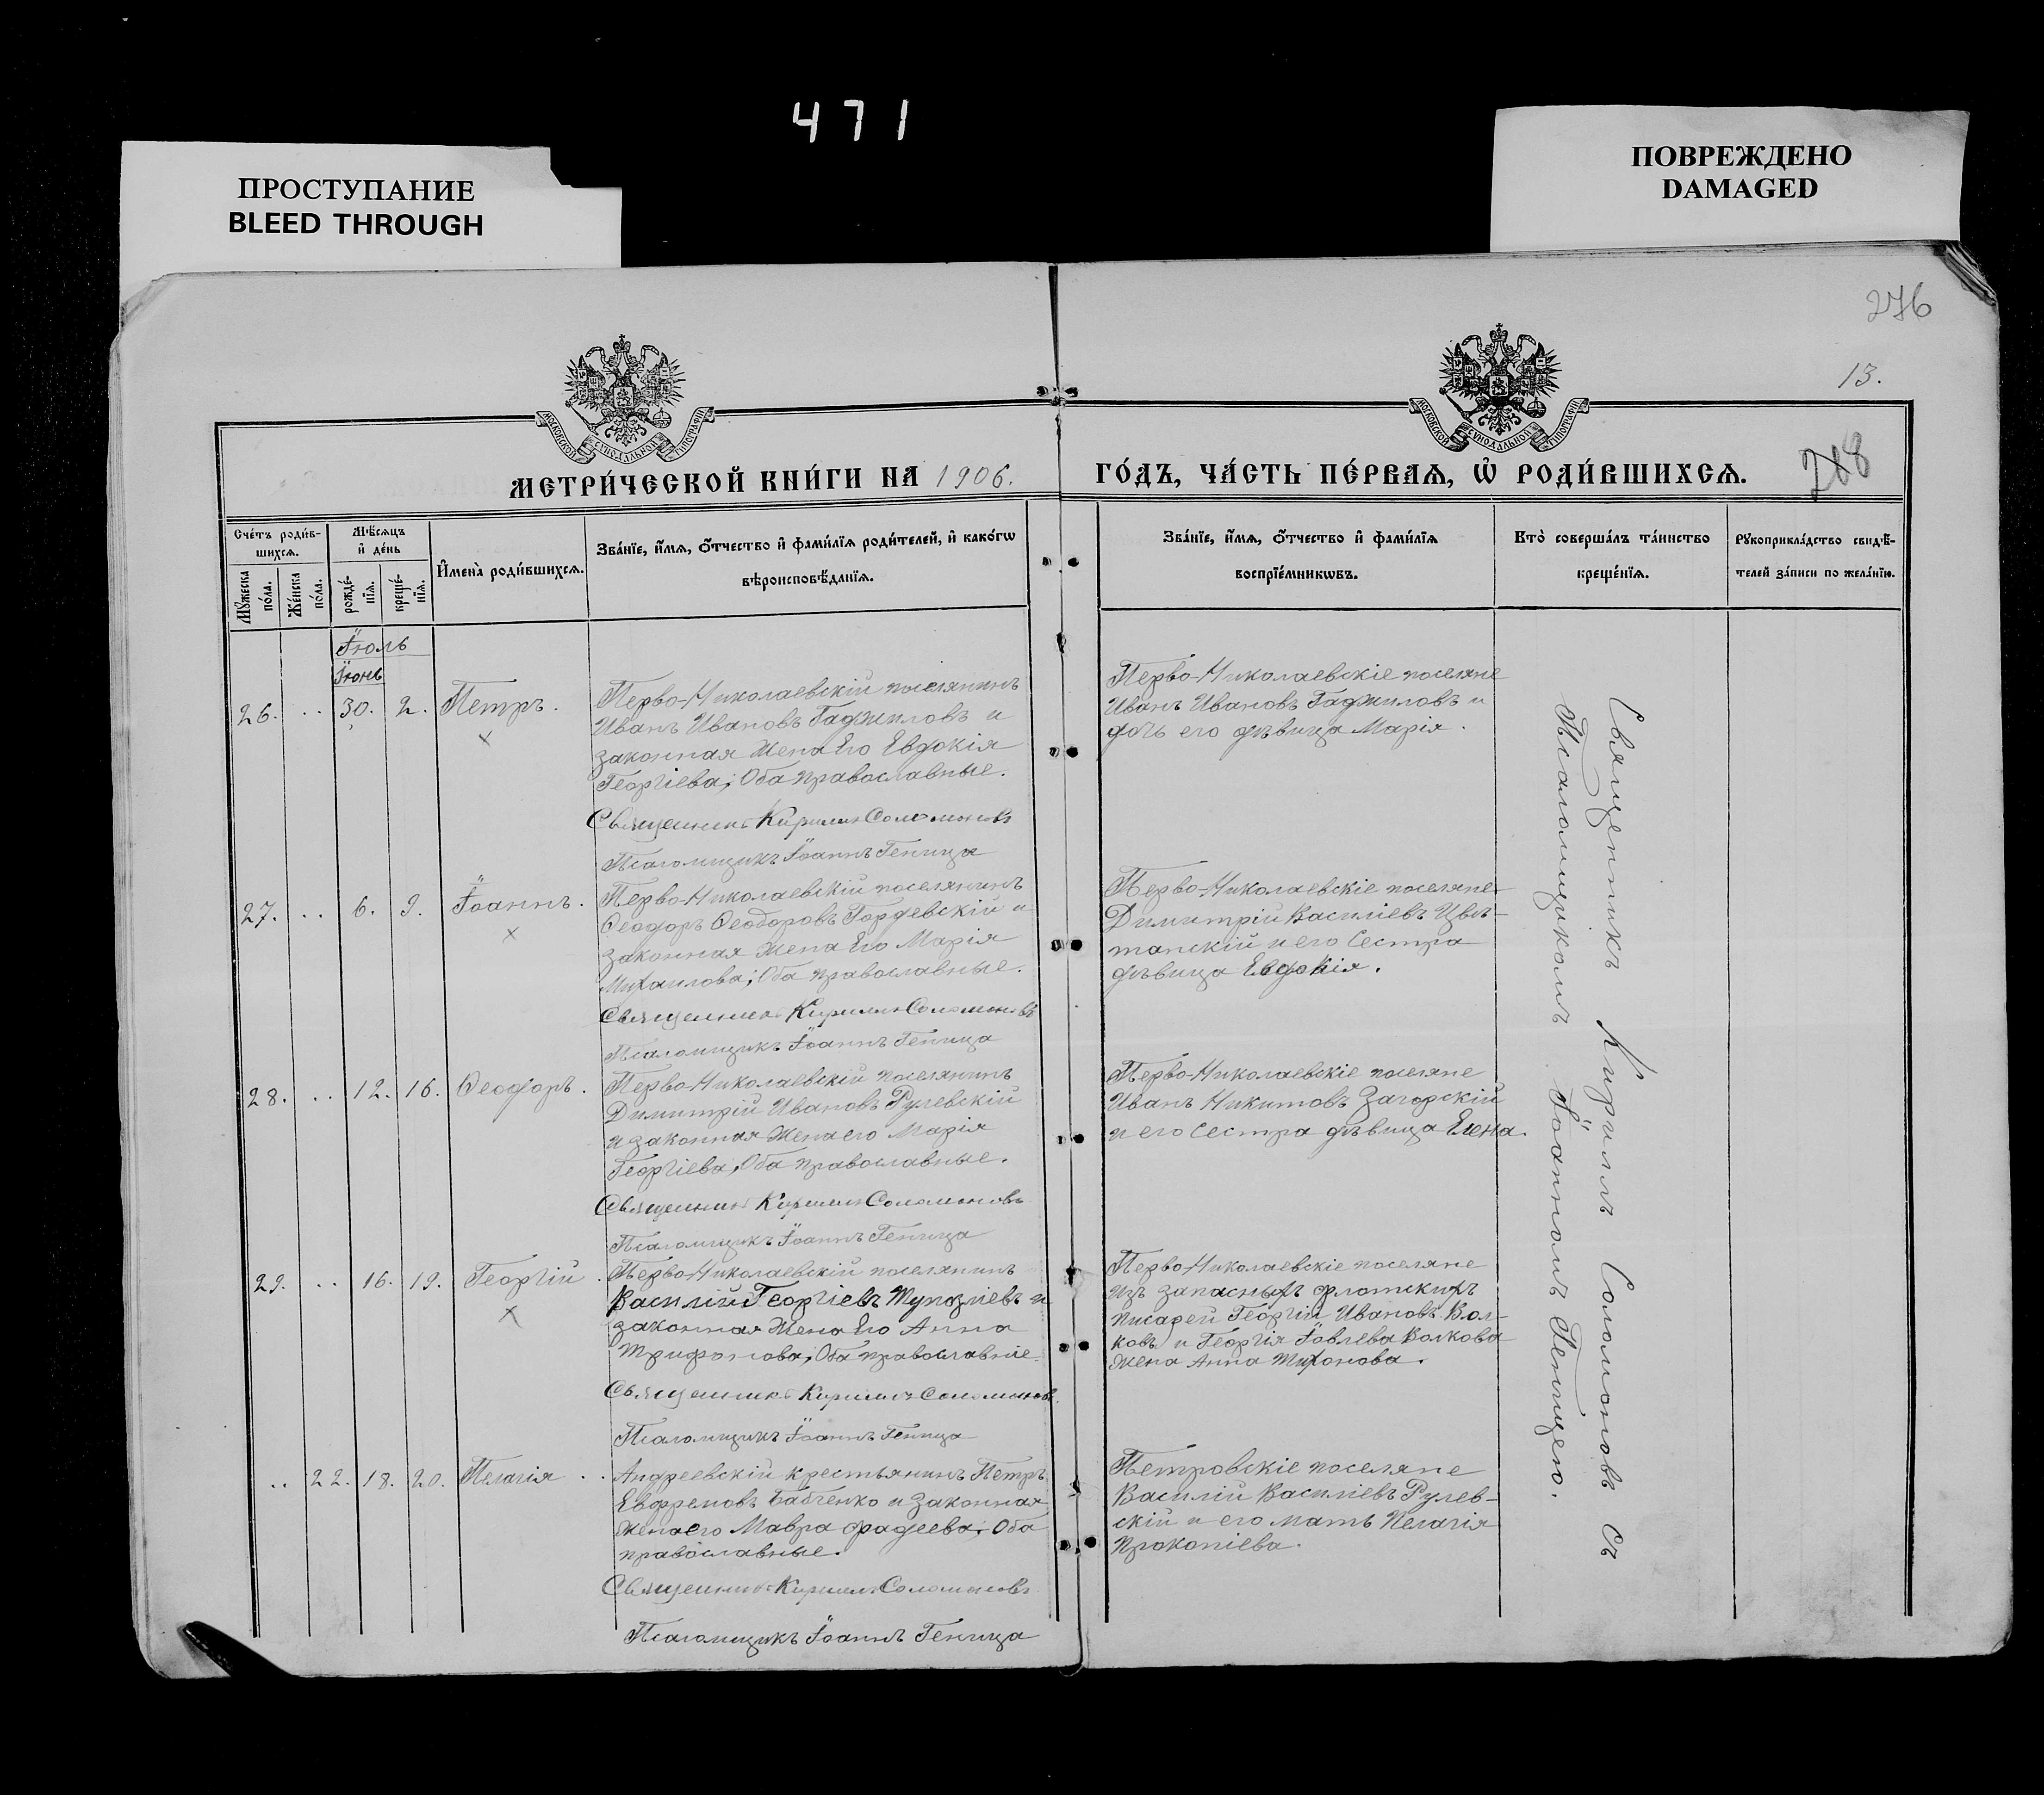 471
ПРОСТУПАНИЕ
BLEED THROUGH
ПОВРЕЖДЕНО
DAMAGED
276
13.
МОСКОВСКОЙ СѴНОДАЛЬНОЙ ТИПОГРАФІИ
МОСКОВСКОЙ СѴНОДАЛЬНОЙ ТИПОГРАФІИ
МЕТРИ́ЧЕСКОЙ КНИ́ГИ НА 1906.
ГО́ДЪ, ЧА́СТЬ ПЕ́РВАѦ, Ѡ҆ РОДИ́ВШИХСѦ.
Сче́тъ роди́в-
шихсѧ.
Мѣ́сѧцъ
и҆ де́нь
Мꙋ́жеска
по́ла.
Же́нска
по́ла.
рожде́-
нїѧ.
креще́-
нїѧ.
И҆мена̀ роди́вшихсѧ.
Зва́нїе, и҆́мѧ, ѻ҆́тчество и҆ фами́лїѧ роди́телей, и҆ како́гѡ
вѣроисповѣ́данїѧ.
Зва́нїе, и҆́мѧ, ѻ҆́тчество и҆ фами́лїѧ
воспрїе́мникѡвъ.
Кто̀ соверша́лъ та́инство
креще́нїѧ.
Рꙋкоприкла́дство свидѣ́-
телей за́писи по жела́нїю.
Іюль
Іюнь
26. .. 30. 2. Петръ.
Перво-Николаевскій поселянинъ
Иванъ Ивановъ Гаджиловъ и
законная жена Его Евдокія
Георгіева; Оба православные.
Священникъ Кириллъ Соломоновъ
Псаломщикъ Іоаннъ Геница
Перво-Николаевскіе поселяне
Иванъ Ивановъ Гаджиловъ и
дочь его дѣвица Марія.
27. .. 6. 9. Іоаннъ.
Перво-Николаевскій поселянинъ
Ѳеодоръ Ѳеодоровъ Гордевскій и
законная жена Его Марія
Михаилова; Оба православные.
Священникъ Кириллъ Соломоновъ
Псаломщикъ Іоаннъ Геница
Перво-Николаевскіе поселяне
Димитрій Василіевъ Цвѣ-
танскій и его Сестра
дѣвица Евдокія.
28. .. 12. 16. Ѳеодоръ.
Перво-Николаевскій поселянинъ
Димитрій Ивановъ Рулевскій
и законная жена его Марія
Георгіева; Оба православные.
Священникъ Кириллъ Соломоновъ
Псаломщикъ Іоаннъ Геница
Перво-Николаевскіе поселяне
Иванъ Никитовъ Загорскій
и его Сестра дѣвица Елена.
29. .. 16. 19. Георгій.
Перво-Николаевскій поселянинъ
Василій Георгіевъ и
законная жена Его Анна
Трифонова; Оба православніе.
Священникъ Кириллъ Соломоновъ
Псаломщикъ Іоаннъ Геница
Перво-Николаевскіе поселяне
изъ запасныхъ флотскихъ
писарей Георгій Ивановъ Вол-
ковъ и Георгія Іовлева Волкова
жена Анна Тихонова.
.. 22. 18. 20. Пелагія.
Андреевскій крестьянинъ Петръ
Евфремовъ Бабченко и законная
жена его Мавра Фадеева; Оба
православные.
Священникъ Кириллъ Соломоновъ
Псаломщикъ Іоаннъ Геница
Петровскіе поселяне
Василій Василіевъ Рулев-
скій и его мать Пелагія
Прокопіева.
Священникъ Кириллъ Соломоновъ съ
Псаломщикомъ Іоанномъ Геницею.